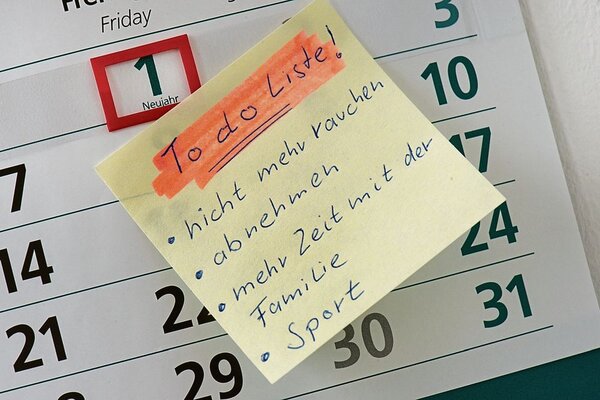 Friday
1
Neujahr
3
To do Liste!
• nicht mehr rauchen
• abnehmen
• mehr Zeit mit der
Familie
• Sport
7
10
14
17
21
24
29
30
31